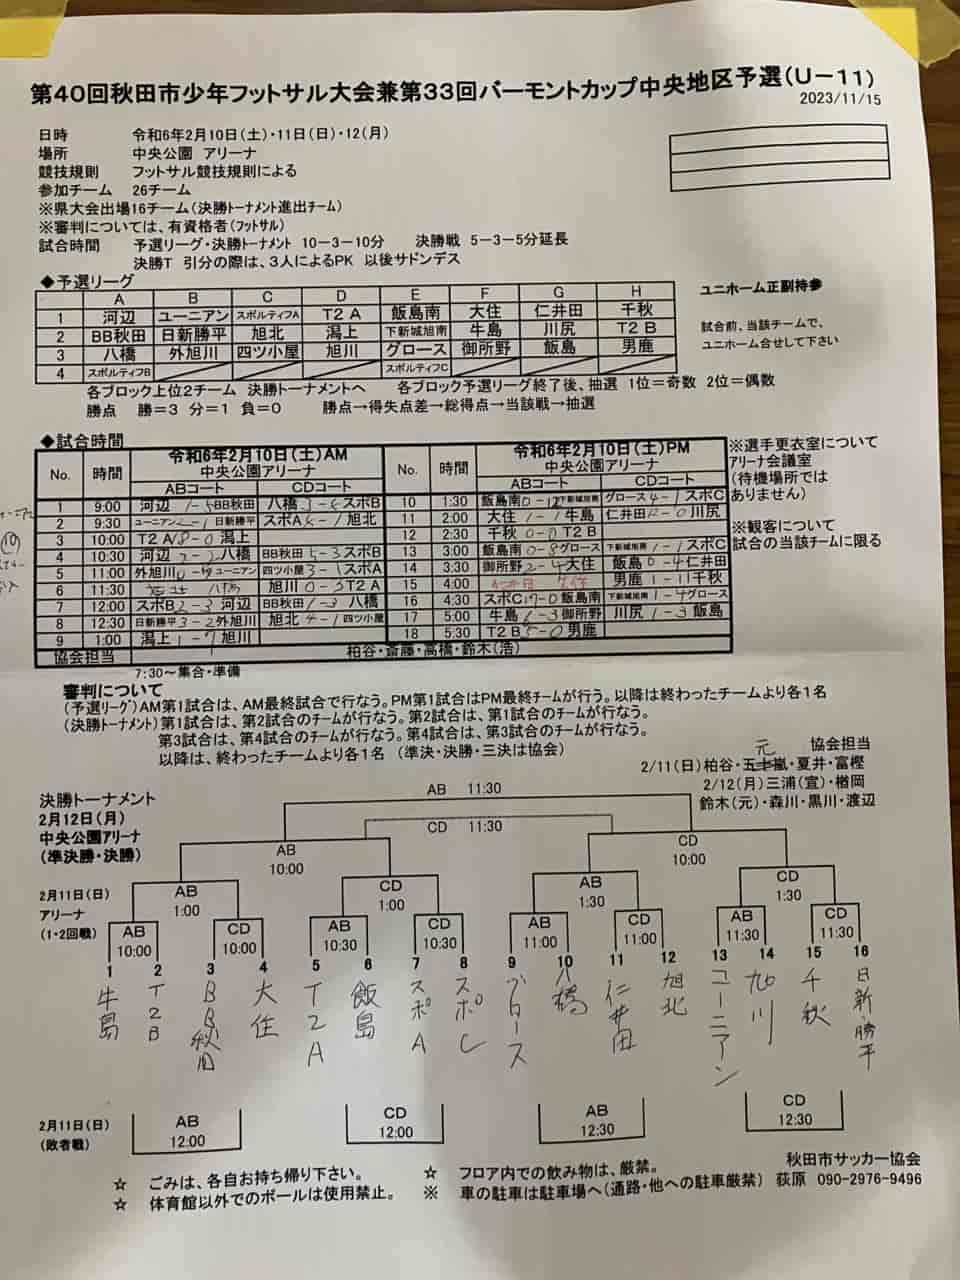 第40回秋田市少年フットサル大会兼第33回バーモントカップ中央地区予選(U-11)
2023/11/15
日時 令和6年2月10日(土)・11日(日)・12(月)
場所 中央公園 アリーナ
競技規則 フットサル競技規則による
参加チーム 26チーム
※県大会出場16チーム(決勝トーナメント進出チーム)
※審判については、有資格者(フットサル)
試合時間 予選リーグ・決勝トーナメント 10-3-10分 決勝戦 5-3-5分延長
決勝T 引分の際は、3人によるPK 以後サドンデス
◆予選リーグ
A B C D E F G H
1 河辺 ユーニアン スポルティフA T2 A 飯島南 大住 仁井田 千秋
2 BB秋田 日新勝平 旭北 潟上 下新城旭南 牛島 川尻 T2 B
3 八橋 外旭川 四ツ小屋 旭川 グロース 御所野 飯島 男鹿
4 スポルティフB スポルティフC
ユニホーム正副持参
試合前、当該チームで、
ユニホーム合せして下さい
各ブロック上位2チーム 決勝トーナメントへ 各ブロック予選リーグ終了後、抽選 1位=奇数 2位=偶数
勝点 勝=3 分=1 負=0 勝点→得失点差→総得点→当該戦→抽選
◆試合時間
No. 時間 令和6年2月10日(土)AM No. 時間 令和6年2月10日(土)PM
中央公園アリーナ 中央公園アリーナ
ABコート CDコート ABコート CDコート
1 9:00 河辺 1-5 BB秋田 八橋 スポB
2 9:30 ユーニアン 日新勝平 スポA 旭北
3 10:00 T2 A 8-0 潟上
4 10:30 河辺 八橋 BB秋田 5-3 スポB
5 11:00 外旭川 ユーニアン 四ツ小屋 3-1 スポA
6 11:30 旭川 0-5 T2 A
7 12:00 スポB 2-3 河辺 BB秋田 1-3 八橋
8 12:30 日新勝平 3-2 外旭川 旭北 4-1 四ツ小屋
9 1:00 潟上 1-7 旭川
10 1:30 飯島南 0-12 下新城旭南 グロース 4-1 スポC
11 2:00 大住 1-1 牛島 仁井田 川尻
12 2:30 千秋 0-0 T2 B
13 3:00 飯島南 0-8 グロース 下新城旭南 1-1 スポC
14 3:30 御所野 2-4 大住 飯島 0-4 仁井田
15 4:00 男鹿 1-11 千秋
16 4:30 スポC 飯島南 下新城旭南 1-4 グロース
17 5:00 牛島 6-3 御所野 川尻 1-3 飯島
18 5:30 T2 B 5-0 男鹿
協会担当 柏谷・斎藤・高橋・鈴木(浩)
※選手更衣室について
アリーナ会議室
(待機場所では
ありません)
※観客について
試合の当該チームに限る
7:30~集合・準備
審判について
(予選リーグ)AM第1試合は、AM最終試合で行なう。PM第1試合はPM最終チームが行う。以降は終わったチームより各1名
(決勝トーナメント)第1試合は、第2試合のチームが行なう。第2試合は、第1試合のチームが行なう。
第3試合は、第4試合のチームが行なう。第4試合は、第3試合のチームが行なう。
以降は、終わったチームより各1名 (準決・決勝・三決は協会)
元
協会担当
2/11(日)柏谷・五十嵐・夏井・富樫
2/12(月)三浦(宣)・楢岡
鈴木(元)・森川・黒川・渡辺
決勝トーナメント
2月12日(月)
中央公園アリーナ
(準決勝・決勝)
AB 11:30
CD 11:30
AB
10:00
CD
10:00
2月11日(日)
アリーナ
(1・2回戦)
AB
1:00
CD
1:00
AB
1:30
CD
1:30
AB
10:00
CD
10:00
AB
10:30
CD
10:30
AB
11:00
CD
11:00
AB
11:30
CD
11:30
1 2 3 4 5 6 7 8 9 10 11 12 13 14 15 16
牛島
T2B
BB秋田
大住
T2A
飯島
スポA
スポC
グロース
八橋
仁井田
旭北
ユーニアン
旭川
千秋
日新勝平
2月11日(日)
(敗者戦)
AB
12:00
CD
12:00
AB
12:30
CD
12:30
☆ ごみは、各自お持ち帰り下さい。 ☆ フロア内での飲み物は、厳禁。
☆ 体育館以外でのボールは使用禁止。 ※ 車の駐車は駐車場へ(通路・他への駐車厳禁)
秋田市サッカー協会
荻原 090-2976-9496